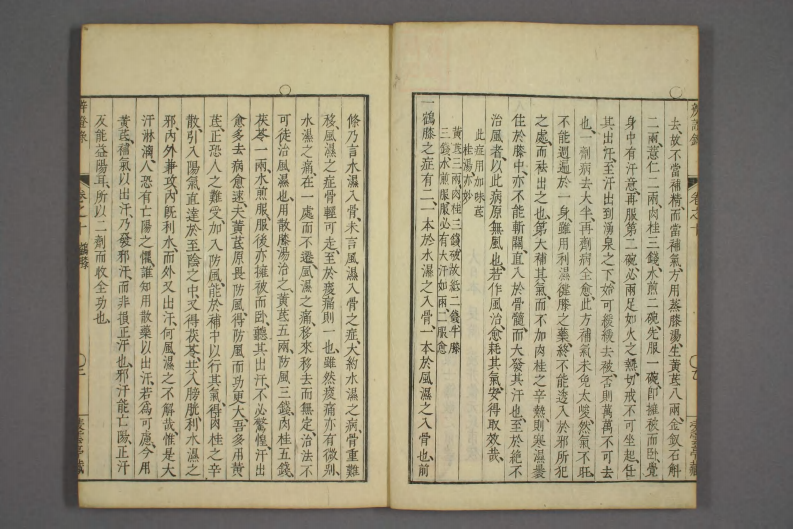 去故不當補精而當補氣方用蒸膝湯生黃芪八兩金釵石斛
二兩薏仁二兩肉桂三錢水煎二碗先服一碗卽擁被而臥覺
身中有汗意再服第二碗必兩足如火之熱切戒不可坐起任
其出汗至汗出到湧泉之下始可緩緩去被否則萬萬不可去
也一劑病去大半再劑病全愈此方補氣未免太峻然氣不旺
不能週遍於一身雖用利濕健膝之藥終不能透入於邪所犯
之處而祛出之也第大補其氣而不加肉桂之辛熱則寒濕裹
住於膝中亦不能斬關直入於骨髓而大發其汗也至於絕不
治風者以此病原無風也若作風治愈耗其氣安得取效哉
此症用加味芪
桂湯亦妙
黃芪三兩肉桂三錢破故紙二錢牛膝
三錢水煎服服必有大汗如雨二服愈
一鶴膝之症有二一本於水濕之入骨一本於風濕之入骨也前
條乃言水濕入骨未言風濕入骨之症大約水濕之病骨重難
移風濕之症骨輕可走至於痠痛則一也雖然痠痛亦有微別
水濕之痛在一處而不遷風濕之痛移來移去而無定治法不
可徒治風濕也用散膝湯治之黃芪五兩防風三錢肉桂五錢
茯苓一兩水煎服服後亦擁被而臥聽其出汗不必驚惶汗出
愈多去病愈速夫黃芪原畏防風得防風而功更大吾多用黃
芪正恐人之難受加入防風能於補中以行其氣得肉桂之辛
散引入陽氣直達於至陰之中又得茯苓共入膀胱利水濕之
邪內外兼攻內旣利水而外又出汗何風濕之不解哉惟是大
汗淋漓人恐有亡陽之懼誰知用散藥以出汗若爲可慮今用
黃芪補氣以出汗乃發邪汗而非損正汗也邪汗能亡陽正汗
反能益陽耳所以二劑而收全功也
辨證錄
卷之十
鶴膝